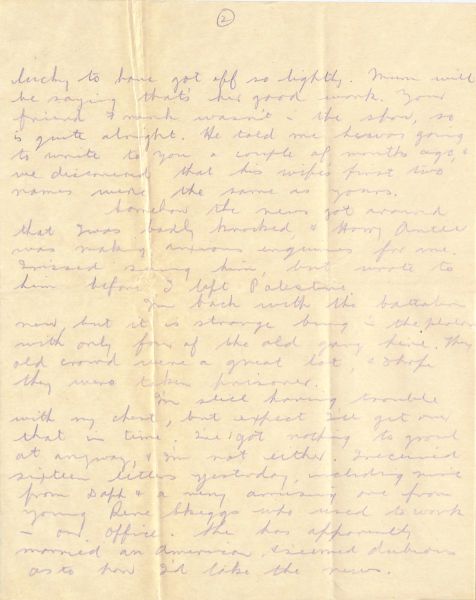 2
lucky to have got off so lightly. Mum will
be saying that's her good work. Your
friend wasn't in the show, so
is quite alright. He told me he was going
to write to you a couple of months ago, &
we discovered that his wife's first two
names were the same as yours.
Somehow the news got around
that I was badly knocked, & Harry
was making anxious enquiries for me.
I missed seeing him, but wrote to
him before I left Palestine
I'm back with the battalion
now, but it is strange being in the
with only four of the old gang here. They
old crowd were a great lot, & I hope
they were taken prisoner.
I'm still having trouble
with my chest, but expect I'll get over
that in time. I've got nothing to growl
at anyway, & I'm not either. I received
sixteen letters yesterday, including
from Daph & a very amusing one from
young Rene Skeggs who used to work
in our office. She has apparently
married an American & seemed dubious
as to how I'd take the news.